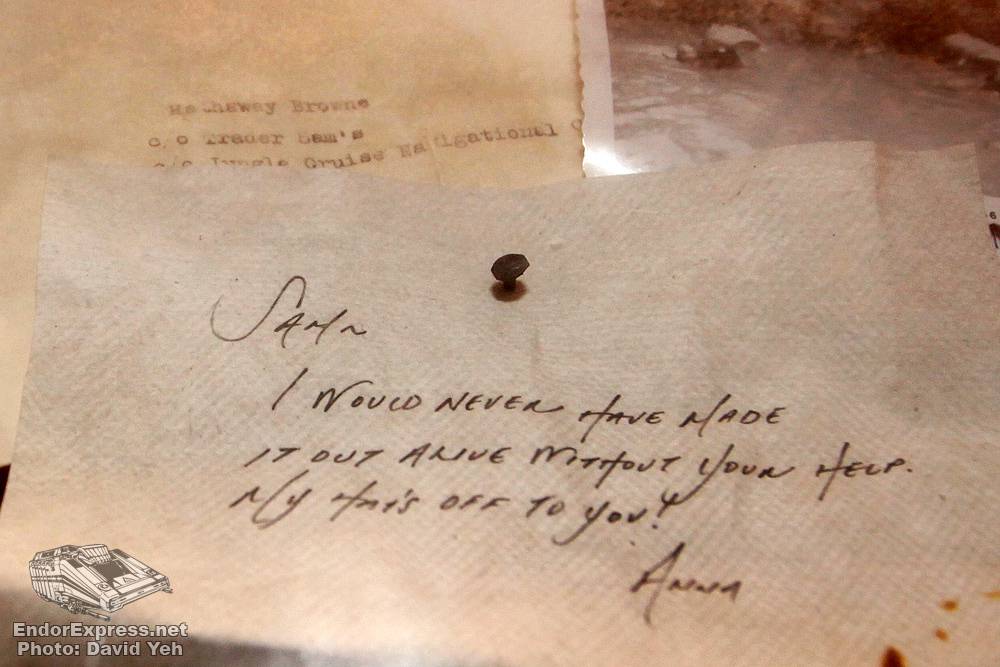 Hathaway Browne
c/o Trader Sam's
c/o Jungle Cruise Navigational
6
Sam,
I would never have made
it out alive without your help.
My hat's off to you!
Anna
EndorExpress.net
Photo: David Yeh